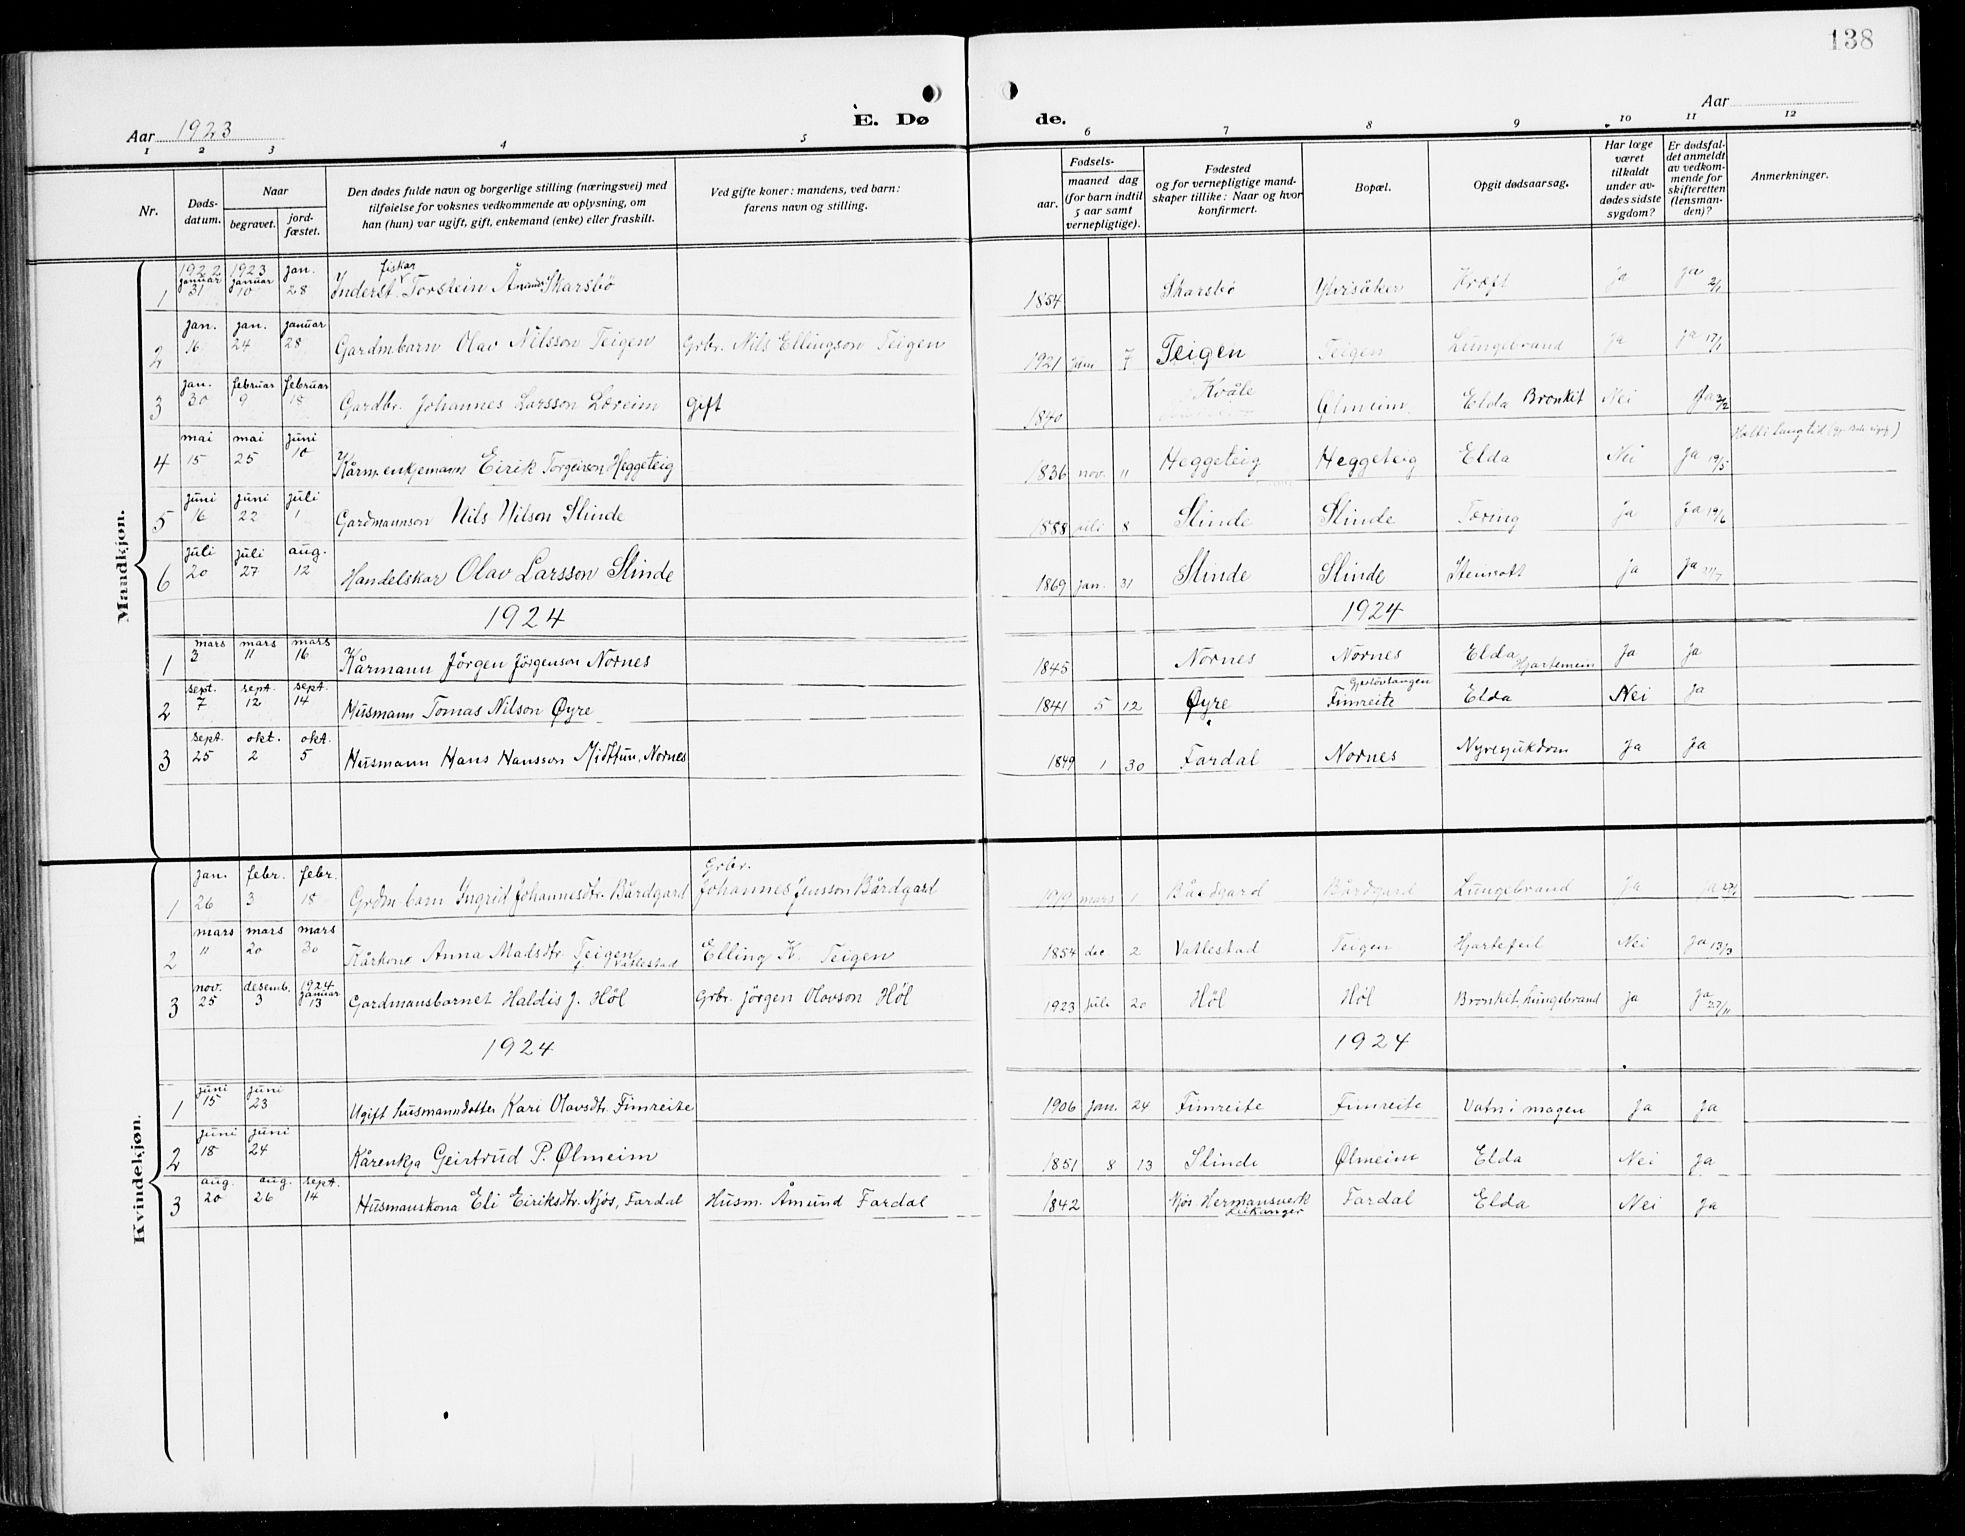 138
Aar 1923
E. Dø
de.
Aar
1 2 3 4 5 6 7 8 9 10 11 12
Nr.
Døds-
datum.
Naar
begravet.
jord-
fæstet.
Den dødes fulde navn og borgerlige stilling (næringsvei) med
tilføielse for voksnes vedkommende av oplysning, om
han (hun) var ugift, gift, enkemand (enke) eller fraskilt.
Ved gifte koner: mandens, ved barn:
farens navn og stilling.
Fødsels-
aar.
maaned dag
(for barn indtil
5 aar samt
vernepligtige).
Fødested
og for vernepligtige mand-
skaper tillike: Naar og hvor
konfirmert.
Bopæl.
Opgit dødsaarsag.
Har læge
været
tilkaldt
under av-
dødes sidste
sygdom?
Er dødsfal-
det anmeldt
av vedkom-
mende for
skifteretten
(lensman-
den)?
Anmerkninger.
Mandkjøn.
1 1922 januar 31 1923 januar 10 jan. 28 Inderst, fiskar Torstein Skarsbø 1854 Skarsbø Ytersåker Kræft Ja Ja 2/1
2 jan. 16 jan. 24 januar 28 Gardmbarn Olav Nilsson Teigen Grbr. Nils Ellingson Teigen 1921 jan 7 Teigen Teigen Lungebrand Ja Ja 17/1
3 jan. 30 februar 9 februar 18 Gardbr. Johannes Larsson Loreim gift 1840 Kvåle Ølmeim Elda Bronkit Nei Ja 2/2
4 mai 15 mai 25 juni 10 Kårm. enkjemann Eirik Torgeirson Heggeteig 1836 nov. 11 Heggeteig Heggeteig Elda Nei Ja 19/5
5 juni 16 juni 22 juli 1 Gardmannson Nils Nilson Slinde 1888 juli 8 Slinde Slinde Tæring Ja Ja 19/6
6 juli 20 juli 27 aug. 12 Handelskar Olav Larsson Slinde 1869 jan. 31 Slinde Slinde Ja Ja
1924 1924
1 mars 3 mars 11 mars 16 Kårmann Jörgen Jörgenson Nornes 1845 Nornes Nornes Elda Hjartemein Ja Ja
2 sept. 7 sept. 12 sept. 14 Husmann Tomas Nilson Øyre 1841 5 12 Øyre Finreite Elda Nei Ja
3 sept. 25 okt. 2 okt. 5 Husmann Hans Hansson Midttun, Nornes 1849 1 30 Fardal Nornes Nyresjukdom Ja Ja
Kvindekjøn.
1 jan. 26 febr. 3 febr. 18 Grdm. barn Ingrid Johannesdtr. Bårdgard Grbr. Johannes Jensson Bårdgard 1919 mars 1 Bårdgard Bårdgard Lungebrand Ja Ja
2 mars 11 mars 20 mars 30 Kårkone Anna Madsdtr. Teigen Vatlestad Elling K. Teigen 1854 dec 2 Vatlestad Teigen Hjartefeil Nei Ja 13/3
3 nov. 25 desemb. 3 1924 januar 13 Gardmansbarnet Haldis J. Høl Grbr. Jörgen Olavson Høl 1923 juli 20 Høl Høl Bronkit, lungebrand Ja Ja 27/11
1924 1924
1 juni 15 juni 23 Ugift husmanndotter Kari Olavsdtr. Fimreite 1906 jan. 24 Fimreite Fimreite Vatn i magen Ja Ja
2 juni 18 juni 24 Kårenkja Geirtrud P. Ølmeim 1851 8 13 Slinde Ølmeim Elda Nei Ja
3 aug. 20 aug. 26 sept. 14 Husmanskona Eli Eiriksdtr. Njøs, Fardal Husm. Åmund Fardal 1842 Njøs Hermansverk Leikanger Fardal Elda Nei Ja